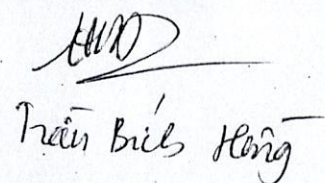 Trần Bích Hồng